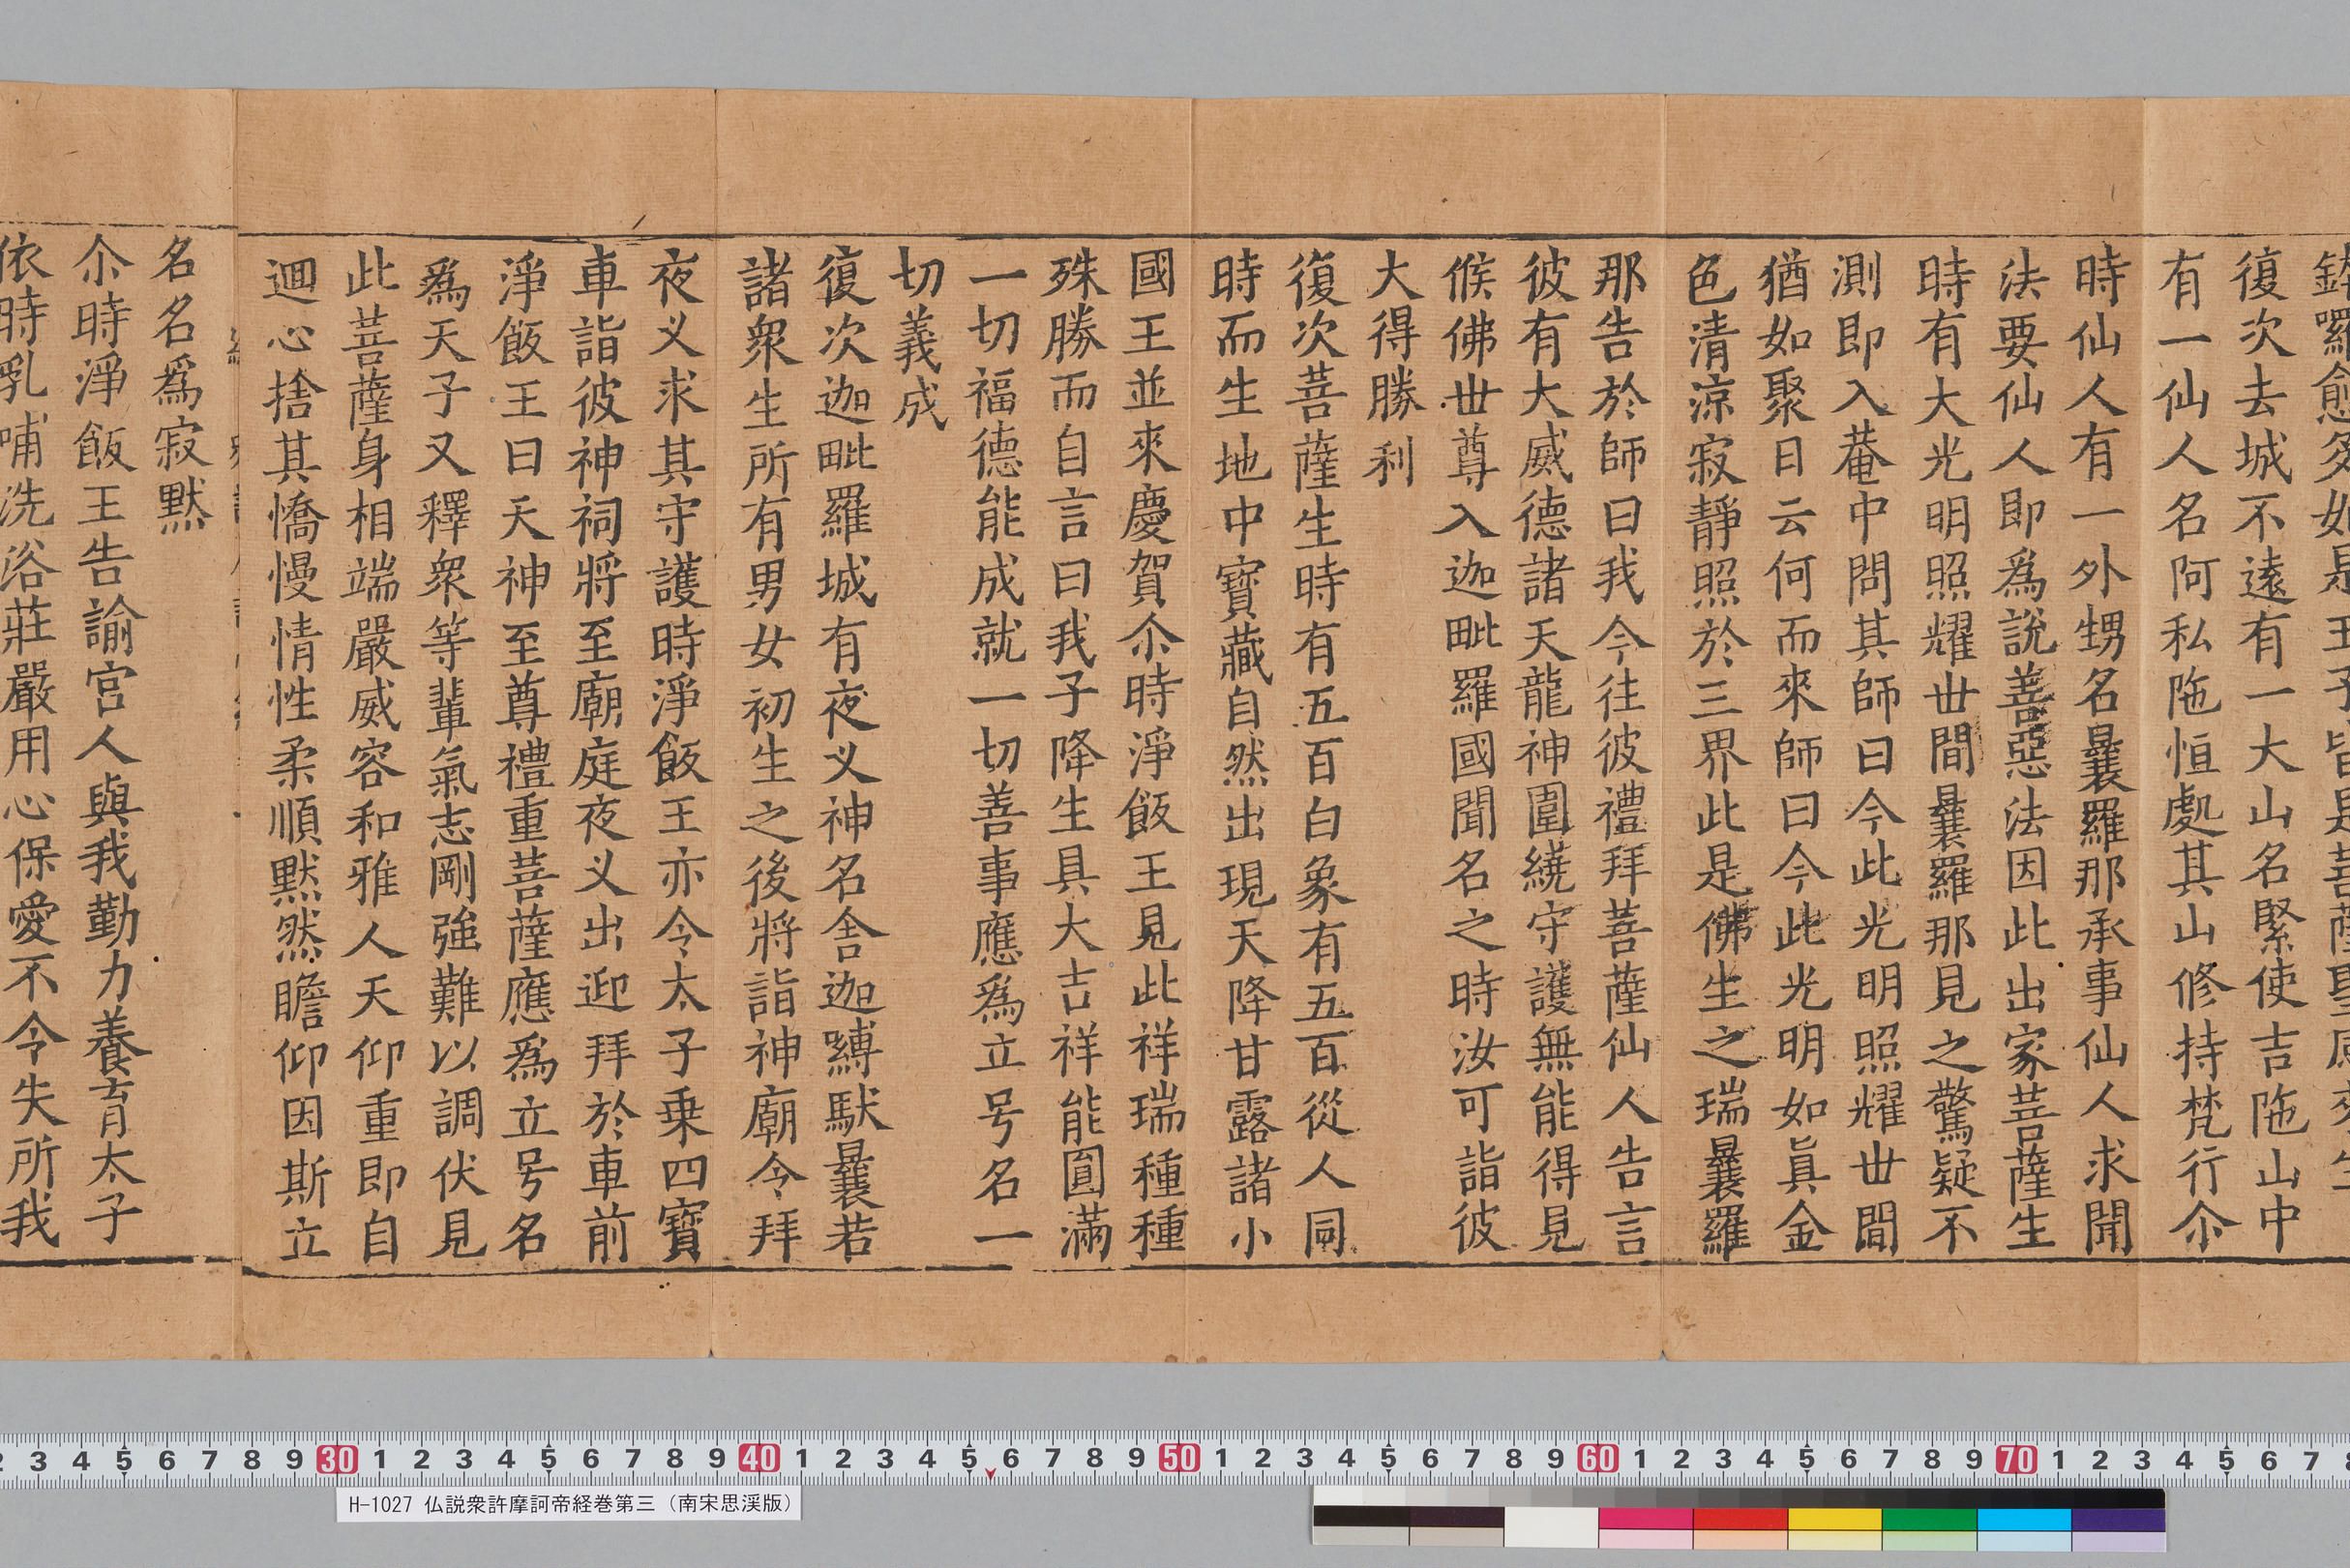 復次去城不遠有一大山名緊使吉陁山中
有一仙人名阿私陁恒處其山修持梵行尒
時仙人有一外甥名曩羅那承事仙人求聞
法要仙人即爲說善惡法因此出家菩薩生
時有大光明照耀世間曩羅那見之驚疑不
測即入菴中問其師曰今此光明照耀世間
猶如聚日云何而來師曰今此光明如眞金
色清涼寂靜照於三界此是佛生之瑞曩羅
那告於師曰我今往彼禮拜菩薩仙人告言
彼有大威德諸天龍神圍繞守護無能得見
候佛世尊入迦毗羅國聞名之時汝可詣彼
大得勝利
復次菩薩生時有五百白象有五百從人同
時而生地中寶藏自然出現天降甘露諸小
國王並來慶賀尒時淨飯王見此祥瑞種種
殊勝而自言曰我子降生具大吉祥能圓滿
一切福德能成就一切善事應爲立号名一
切義成
復次迦毗羅城有夜义神名舍迦嚩馱曩若
諸衆生所有男女初生之後將詣神廟令拜
夜义求其守護時淨飯王亦令太子乗四寶
車詣彼神祠將至廟庭夜义出迎拜於車前
淨飯王曰天神至尊禮重菩薩應爲立号名
爲天子又釋衆等輩氣志剛強難以調伏見
此菩薩身相端嚴威容和雅人天仰重即自
迴心捨其憍慢情性柔順默然瞻仰因斯立
名名爲寂默
尒時淨飯王告諭宮人與我勤力養育太子
依時乳哺洗浴莊嚴用心保愛不令失所我
30 40 50 60 70
H-1027 仏説衆許摩訶帝経巻第三（南宋思渓版）